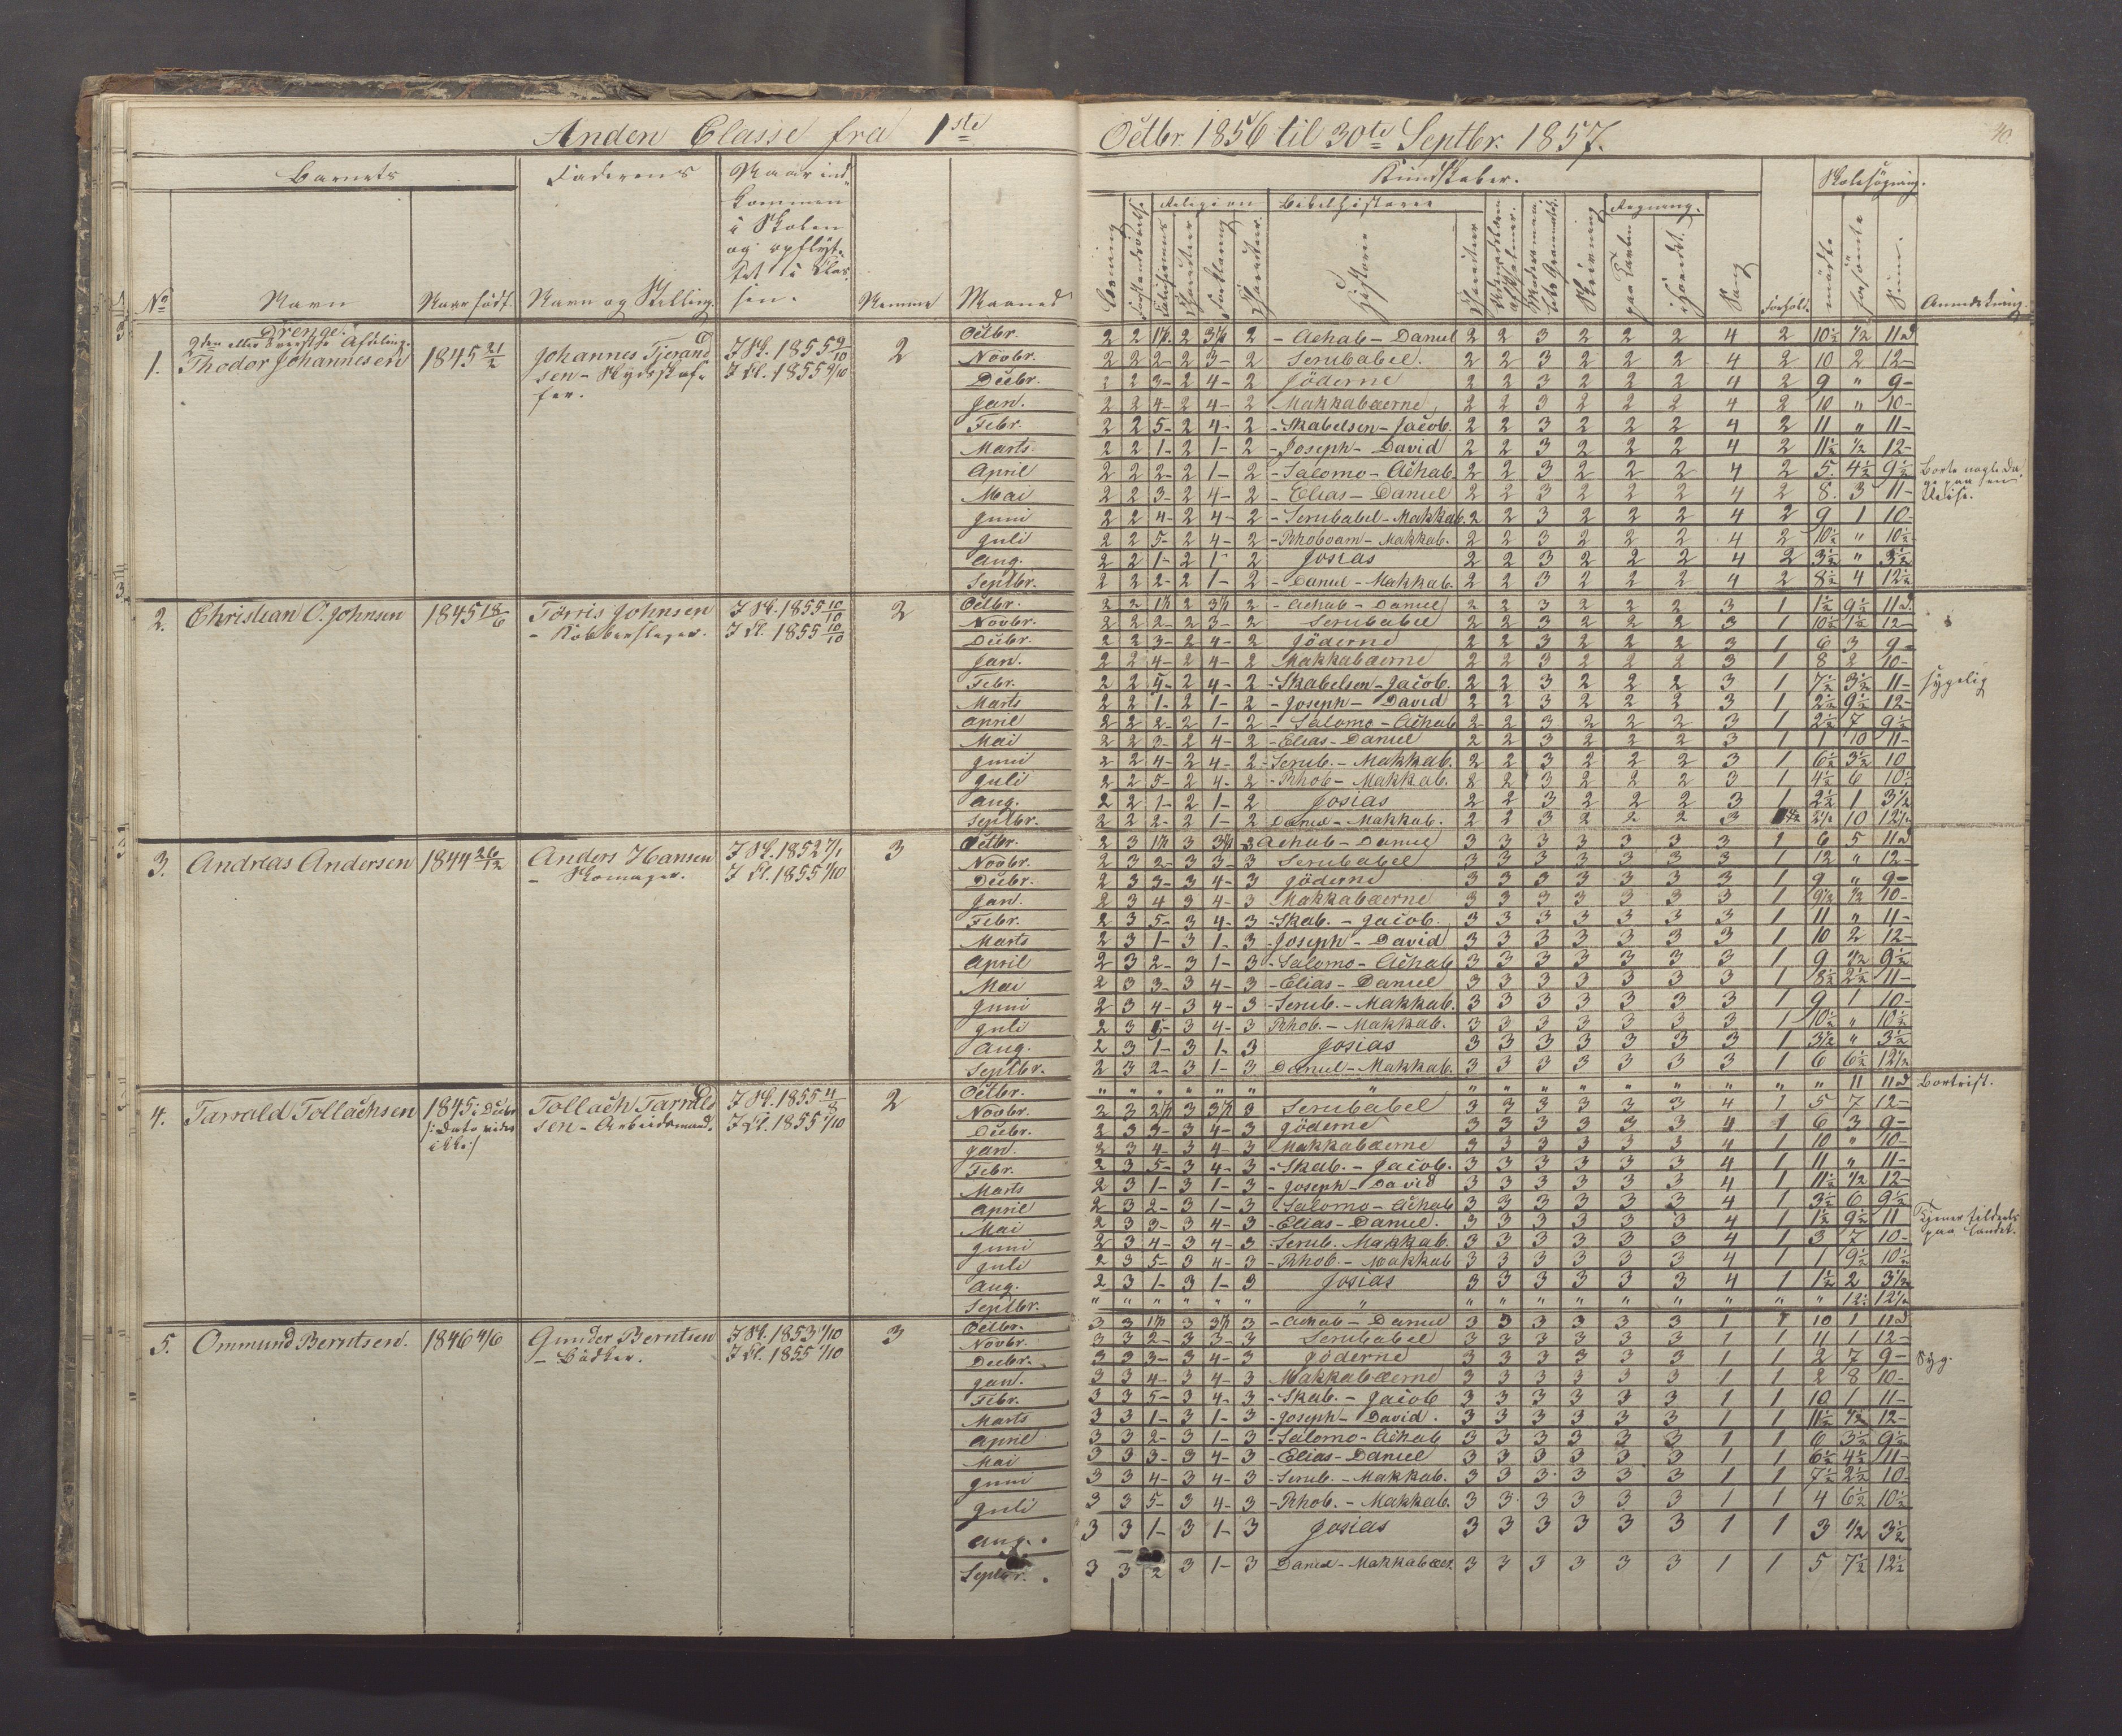 Anden Classe fra 1ste Octbr. 1856 til 30te Septbr. 1857.
30.
Barnets
Faderens
Naar ind-
kommen
i Skolen
og opflyt-
tet i Clas-
sen.
Kundskaber.
Skolesøgning.
Religion
Bibelhistorie
Regning.
No
Navn
Naar født.
Navn og Stilling.
Nemme
Maaned
Læsning
Historie
Skrivning
paa Tavlen
i Hovedet.
Sang
Forhold.
mødte
forsømte
Sum.
Anmærkning.
Drenge.
1. Thodor Johannesen 1845 21/2 Johannes Tjerand I Sk. 1855 9/10 2
sen - Skydsskaf- I Kl. 1855 9/10
fer.
Octbr. 2 2 1½ 2 3½ 2 - Achab - Daniel 2 2 3 2 2 2 4 2 10½ ½ 11 d
Novbr. 2 2 2- 2 3- 2 Serubabel. 2 2 3 2 2 2 4 2 10 2 12-
Decbr. 2 2 3- 2 4- 2 Jöderne 2 2 3 2 2 2 4 2 9 " 9-
Jan. 2 2 4- 2 4- 2 Makkabæerne 2 2 3 2 2 2 4 2 10 " 10-
Febr. 2 2 5- 2 4- 2 - Skabelsen - Jacob. 2 2 3 2 2 2 4 2 11 " 11-
Marts 2 2 1- 2 1- 2 - Joseph - David 2 2 3 2 2 2 4 2 11½ ½ 12-
April 2 2 2- 2 1- 2 - Salomo - Achab. 2 2 3 2 2 2 4 2 5 4½ 9½ Borte nogle Da-
ge paa en
Reise.
Mai 2 2 3- 2 4- 2 - Elias - Daniel 2 2 3 2 2 2 4 2 8. 3 11-
Juni 2 2 4- 2 4- 2 - Serubabel - Makkab. 2 2 3 2 2 2 4 2 9 1 10-
Juli 2 2 5- 2 4- 2 - Rhoboam - Makkab. 2 2 3 2 2 2 4 2 10½ " 10½
Aug. 2 2 1- 2 1- 2 Josias 2 2 3 2 2 2 4 2 3½ " 3½
Septbr. 2 2 2- 2 1- 2 - Daniel - Makkab. 2 2 3 2 2 2 4 2 8½ 4 12½
2. Christian O. Johnsen 1845 18/6 Tørris Johnsen I Sk. 1855 10/10 2
- Kobberslager. I Kl. 1855 10/10
Octbr. 2 2 1½ 2 3½ 2 - Achab - Daniel 2 2 3 2 2 2 3 1 1½ 9½ 11 d.
Novbr. 2 2 2- 2 3- 2 Serubabel 2 2 3 2 2 2 3 1 10½ 1½ 12-
Decbr. 2 2 3- 2 4- 2 Jöderne 2 2 3 2 2 2 3 1 6 3 9-
Jan. 2 2 4- 2 4- 2 Makkabæerne 2 2 3 2 2 2 3 1 8 2 10-
Febr. 2 2 5- 2 4- 2 - Skabelsen - Jacob. 2 2 3 2 2 2 3 1 7½ 3½ 11- sygelig
Marts 2 2 1- 2 1- 2 - Joseph - David 2 2 3 2 2 2 3 1 2½ 9½ 12-
April 2 2 2- 2 1- 2 - Salomo - Achab 2 2 3 2 2 2 3 1 2½ 7 9½
Mai 2 2 3- 2 4- 2 - Elias - Daniel 2 2 3 2 2 2 3 1 1 10 11-
Juni 2 2 4- 2 4- 2 - Serub. - Makkab. 2 2 3 2 2 2 3 1 6½ 3½ 10
Juli 2 2 5- 2 4- 2 - Rhob - Makkab. 2 2 3 2 2 2 3 1 4½ 6 10½
Aug. 2 2 1- 2 1- 2 Josias 2 2 3 2 2 2 3 1 2½ 1 3½
Septbr. 2 2 2- 2 1- 2 Daniel - Makkab. 2 2 3 2 2 2 3 2½ 10 12½
3. Andreas Andersen 1844 26/12 Anders Hansen I Sk. 1852 7/1 3
- Skomager. I Kl. 1855 1/10
Octbr. 2 3 1½ 3 3½ 3 Achab - Daniel 3 3 3 3 3 3 3 1 6 5 11 d
Novbr. 2 3 2- 3 3- 3 Serubabel 3 3 3 3 3 3 3 1 12 " 12-
Decbr. 2 3 3- 3 4- 3 Jöderne 3 3 3 3 3 3 3 1 9 " 9-
Jan. 2 3 4 3 4- 3 Makkabæerne 3 3 3 3 3 3 3 1 9½ ½ 10-
Febr. 2 3 5- 3 4- 3 - Skab. - Jacob. 3 3 3 3 3 3 3 1 11 " 11-
Marts 2 3 1- 3 1- 3 - Joseph - David 3 3 3 3 3 3 3 1 10 2 12-
April 2 3 2- 3 1- 3 - Salomo - Achab 3 3 3 3 3 3 3 1 9 ½ 9½
Mai 2 3 3- 3 4- 3 - Elias - Daniel 3 3 3 3 3 3 3 1 8½ 2½ 11-
Juni 2 3 4- 3 4- 3 - Serub. - Makkab. 3 3 3 3 3 3 3 1 9 1 10-
Juli 2 3 5- 3 4- 3 Rhob. - Makkab. 3 3 3 3 3 3 3 1 10½ " 10½
Aug. 2 3 1- 3 1- 3 Josias 3 3 3 3 3 3 3 1 3½ " 3½
Septbr. 2 3 2- 3 1- 3 Daniel - Makkab. 3 3 3 3 3 3 3 1 6 6½ 12½
4. Tarrald Tollachsen 1845 i Decbr. Tollach Tarrald I Sk. 1855 4/8 2
/: Dato vides sen - Arbeidsmand. I Kl. 1855 1/10
ikke :/
Octbr. " " " " " " " " " " " " " " " " 11 11 d Bortreist.
Novbr. 2 3 2½ 3 3½ 3 Serubabel 3 3 3 3 3 3 4 1 5 7 12-
Decbr. 2 3 3- 3 4- 3 Jöderne 3 3 3 3 3 3 4 1 6 3 9-
Jan. 2 3 4- 3 4- 3 Makkabæerne 3 3 3 3 3 3 4 1 10 " 10-
Febr. 2 3 5- 3 4- 3 - Skab. - Jacob. 3 3 3 3 3 3 4 1 11 " 11-
Marts 2 3 1- 3 1- 3 - Joseph - David 3 3 3 3 3 3 4 1 11½ ½ 12-
April 2 3 2- 3 1- 3 - Salomo - Achab 3 3 3 3 3 3 4 1 3½ 6 9½
Mai 2 3 3- 3 4- 3 - Elias - Daniel. 3 3 3 3 3 3 4 1 1½ 9½ 11 Tjener tildeels
paa Landet.
Juni 2 3 4- 3 4- 3 - Serub. Makkab. 3 3 3 3 3 3 4 1 3 7 10-
Juli 2 3 5- 3 4- 3 - Rhob. - Makkab 3 3 3 3 3 3 4 1 1 9½ 10½
Aug. 2 3 1- 3 1- 3 Josias 3 3 3 3 3 3 4 1 1½ 2 3½
Septbr. " " " " " " " " " " " " " " " " 12½ 12½
5. Ommund Berntsen. 1846 4/6 Gunder Berntsen I Sk. 1853 1/10 3
- Bødker. I Kl. 1855 1/10
Octbr. 3 3 1½ 3 3½ 3 - Achab - Daniel 3 3 3 3 3 3 1 1 10 1 11 d
Novbr. 3 3 2- 3 3- 3 Serubabel 3 3 3 3 3 3 1 1 11 1 12-
Decbr. 3 3 3- 3 4- 3 Jöderne 3 3 3 3 3 3 1 1 2 7 9- Syg.
Jan. 3 3 4- 3 4- 3 Makkabæerne 3 3 3 3 3 3 1 1 2 8 10-
Febr. 3 3 5- 3 4- 3 - Skab. - Jacob 3 3 3 3 3 3 1 1 10 1 11-
Marts 3 3 1- 3 1- 3 - Joseph - David. 3 3 3 3 3 3 1 1 11½ ½ 12-
April 3 3 2- 3 1- 3 - Salomo - Achab 3 3 3 3 3 3 1 1 6 3½ 9½
Mai 3 3 3- 3 4- 3 - Elias - Daniel 3 3 3 3 3 3 1 1 6½ 4½ 11-
Juni 3 3 4- 3 4- 3 - Serub. - Makkab. 3 3 3 3 3 3 1 1 7½ 2½ 10-
Juli 3 3 5- 3 4- 3 - Rhob. - Makkab. 3 3 3 3 3 3 1 1 4 6½ 10½
Aug. 3 3 1- 3 1- 3 Josias 3 3 3 3 3 3 1 1 3 ½ 3½
Septbr. 3 3 2 3 1- 3 Daniel - Makkabæer. 3 3 3 3 3 3 1 1 5 7½ 12½